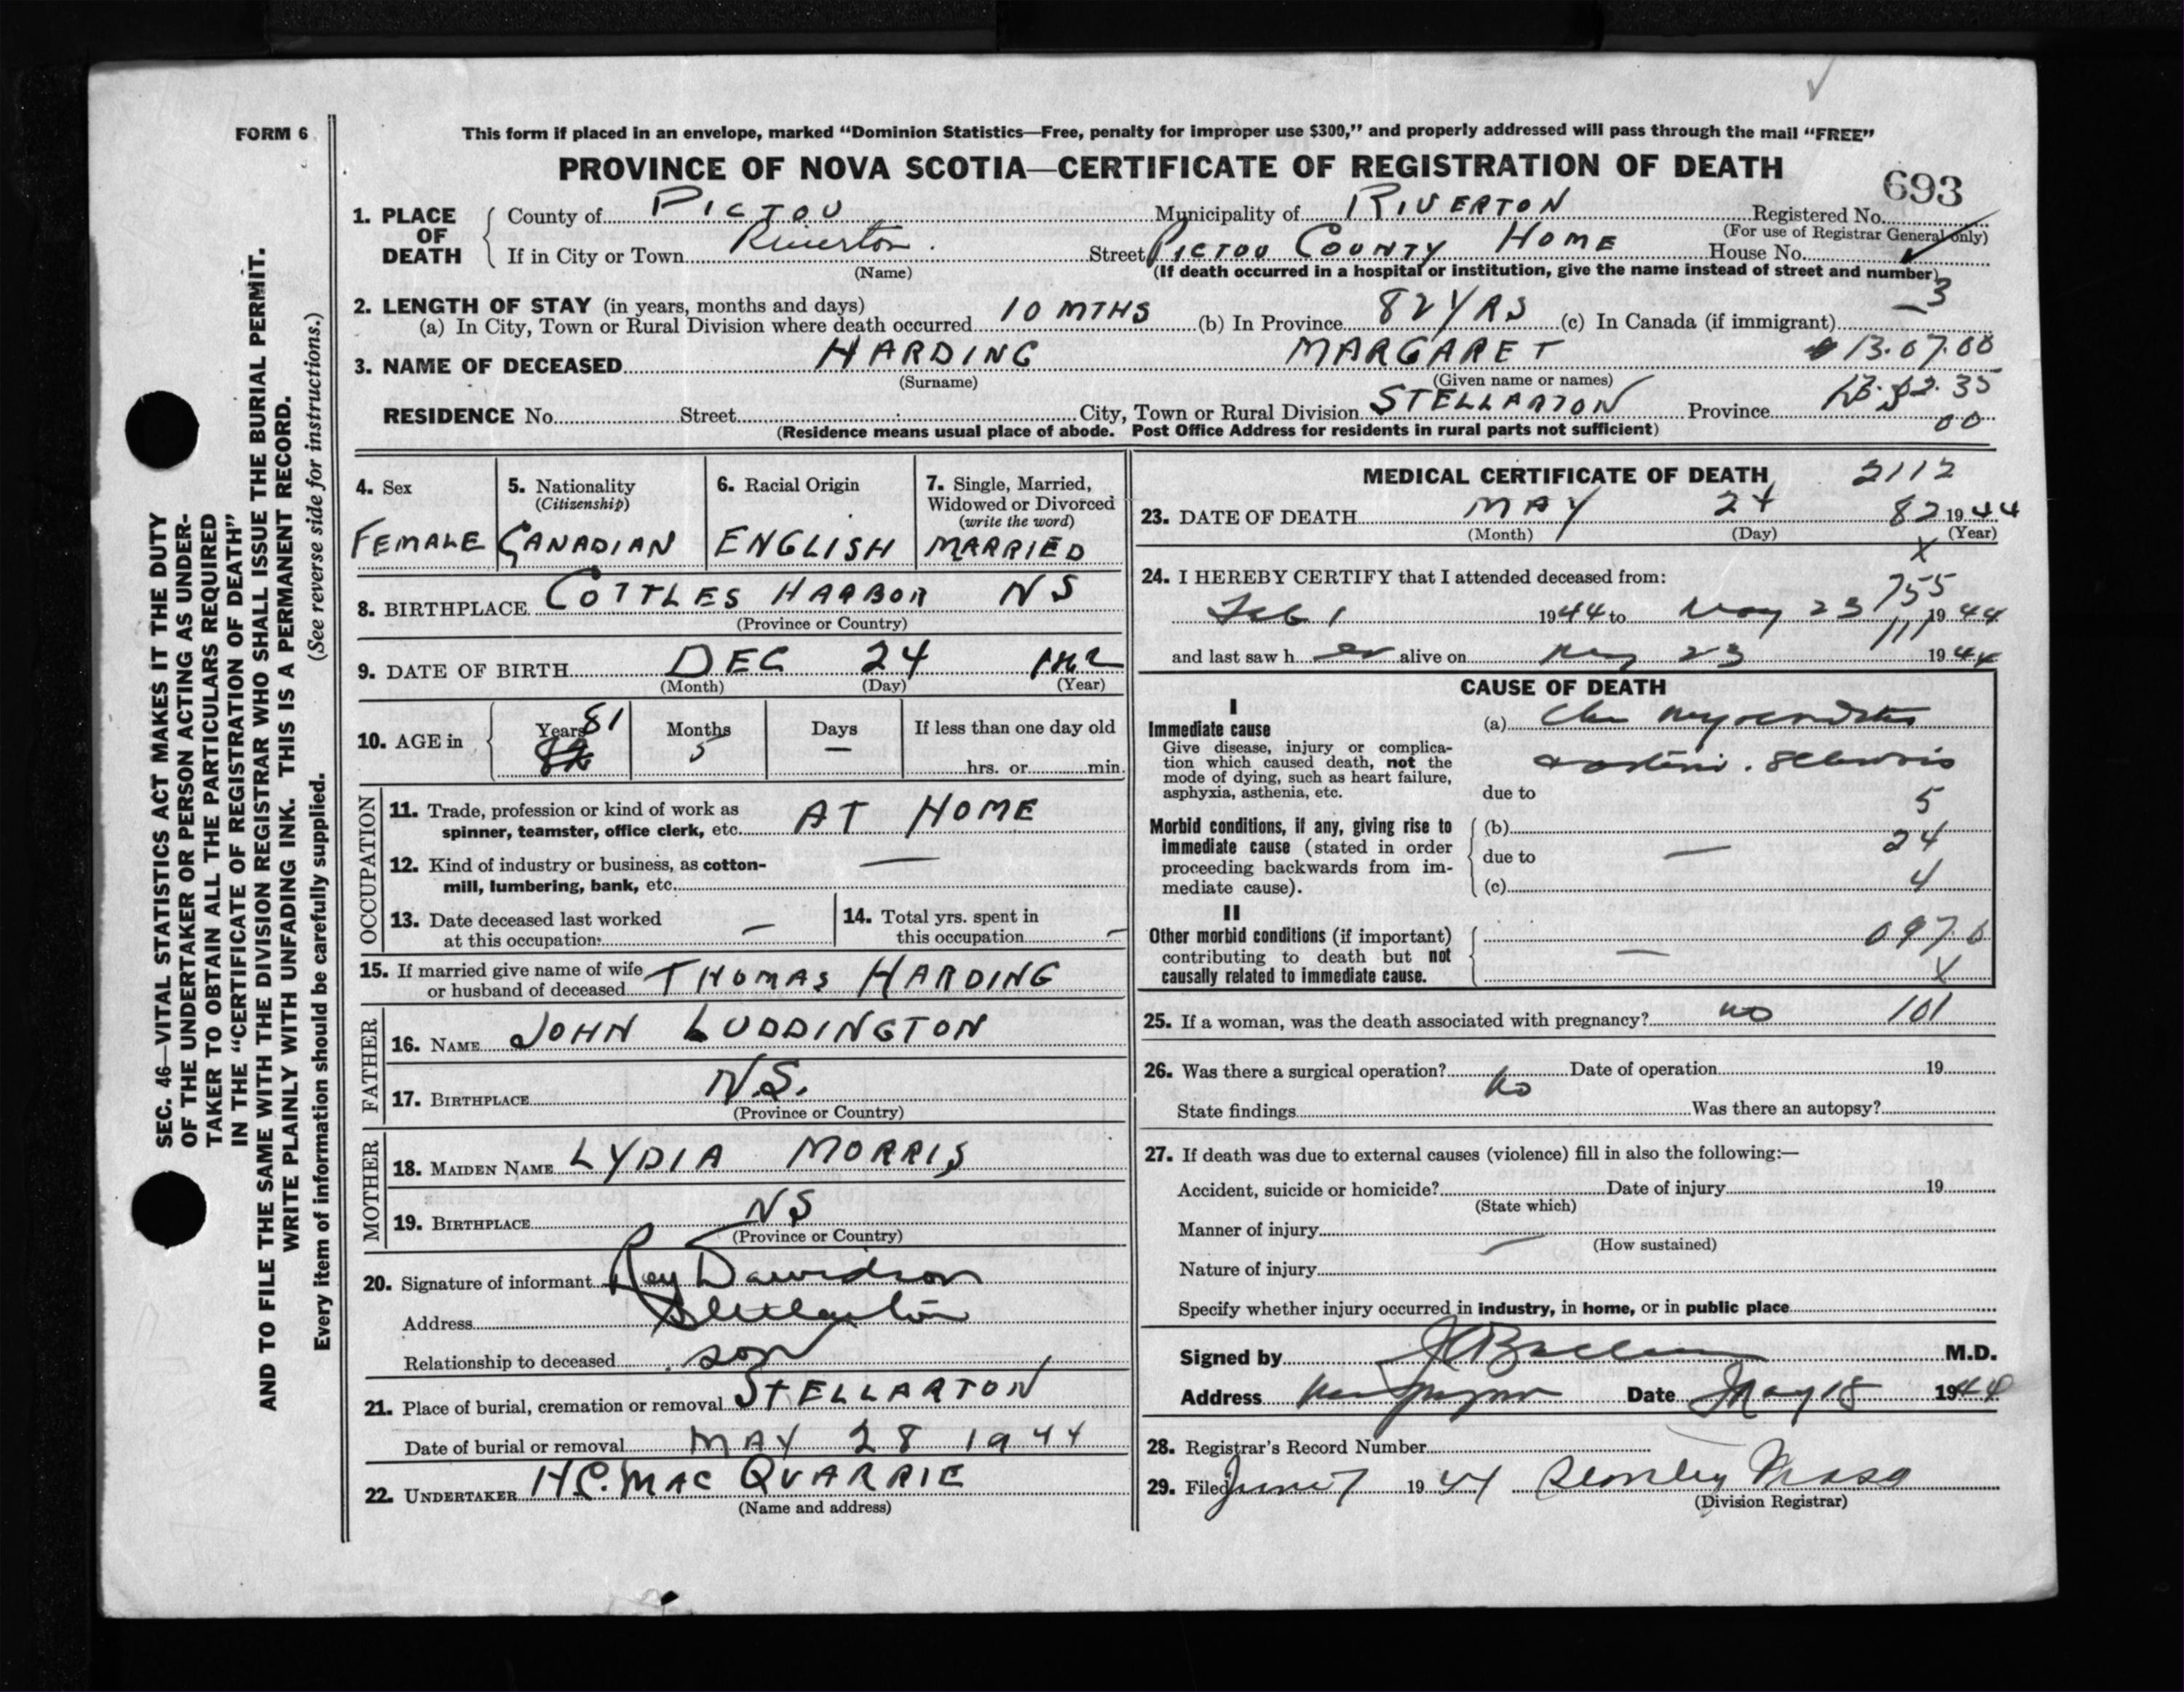 FORM 6
This form if placed in an envelope, marked “Dominion Statistics—Free, penalty for improper use $300,” and properly addressed will pass through the mail “FREE”
PROVINCE OF NOVA SCOTIA—CERTIFICATE OF REGISTRATION OF DEATH
693
SEC. 46—VITAL STATISTICS ACT MAKES IT THE DUTY
OF THE UNDERTAKER OR PERSON ACTING AS UNDER-
TAKER TO OBTAIN ALL THE PARTICULARS REQUIRED
IN THE “CERTIFICATE OF REGISTRATION OF DEATH”
AND TO FILE THE SAME WITH THE DIVISION REGISTRAR WHO SHALL ISSUE THE BURIAL PERMIT.
WRITE PLAINLY WITH UNFADING INK. THIS IS A PERMANENT RECORD.
Every item of information should be carefully supplied. (See reverse side for instructions.)
1. PLACE OF DEATH County of PICTOU Municipality of RIVERTON Registered No.
(For use of Registrar General only)
If in City or Town Riverton. Street PICTOU COUNTY HOME House No.
(Name) (If death occurred in a hospital or institution, give the name instead of street and number)
2. LENGTH OF STAY (in years, months and days) 3
(a) In City, Town or Rural Division where death occurred 10 MTHS (b) In Province 82 YRS (c) In Canada (if immigrant)
3. NAME OF DECEASED HARDING MARGARET 13.07.00
(Surname) (Given name or names)
RESIDENCE No. Street City, Town or Rural Division STELLARTON Province 00
(Residence means usual place of abode. Post Office Address for residents in rural parts not sufficient)
4. Sex FEMALE
5. Nationality (Citizenship) CANADIAN
6. Racial Origin ENGLISH
7. Single, Married, Widowed or Divorced (write the word) MARRIED
8. BIRTHPLACE COTTLES HARBOR NS
(Province or Country)
9. DATE OF BIRTH DEC 24
(Month) (Day) (Year)
10. AGE in Years 81 Months 5 Days — If less than one day old
hrs. or min.
OCCUPATION
11. Trade, profession or kind of work as
spinner, teamster, office clerk, etc. AT HOME
12. Kind of industry or business, as cotton-
mill, lumbering, bank, etc. —
13. Date deceased last worked
at this occupation: —
14. Total yrs. spent in
this occupation —
15. If married give name of wife
or husband of deceased THOMAS HARDING
FATHER
16. NAME JOHN LUDDINGTON
17. BIRTHPLACE N.S.
(Province or Country)
MOTHER
18. MAIDEN NAME LYDIA MORRIS
19. BIRTHPLACE NS
(Province or Country)
20. Signature of informant Roy Davidson
Address Stellarton
Relationship to deceased son
21. Place of burial, cremation or removal STELLARTON
Date of burial or removal MAY 28 1944
22. UNDERTAKER H.C. MAC QUARRIE
(Name and address)
MEDICAL CERTIFICATE OF DEATH 2112
23. DATE OF DEATH MAY 24 82 1944
(Month) (Day) (Year)
X
24. I HEREBY CERTIFY that I attended deceased from: 755
Feb 1 1944 to May 23 1944
111
and last saw h er alive on May 23 1944
CAUSE OF DEATH
I
Immediate cause (a) Chr myocarditis
Give disease, injury or complica-
tion which caused death, not the
mode of dying, such as heart failure,
asphyxia, asthenia, etc.
due to
5
Morbid conditions, if any, giving rise to
immediate cause (stated in order
proceeding backwards from im-
mediate cause).
(b) 24
due to —
(c) 4
II
Other morbid conditions (if important)
contributing to death but not
causally related to immediate cause.
— 097.0
X
25. If a woman, was the death associated with pregnancy? no 101
26. Was there a surgical operation? no Date of operation 19
State findings Was there an autopsy?
27. If death was due to external causes (violence) fill in also the following:—
Accident, suicide or homicide? Date of injury 19
(State which)
Manner of injury
(How sustained)
Nature of injury —
Specify whether injury occurred in industry, in home, or in public place
Signed by M.D.
Address Date May 18 1944
28. Registrar's Record Number
29. Filed June 7 1944 Stanley
(Division Registrar)